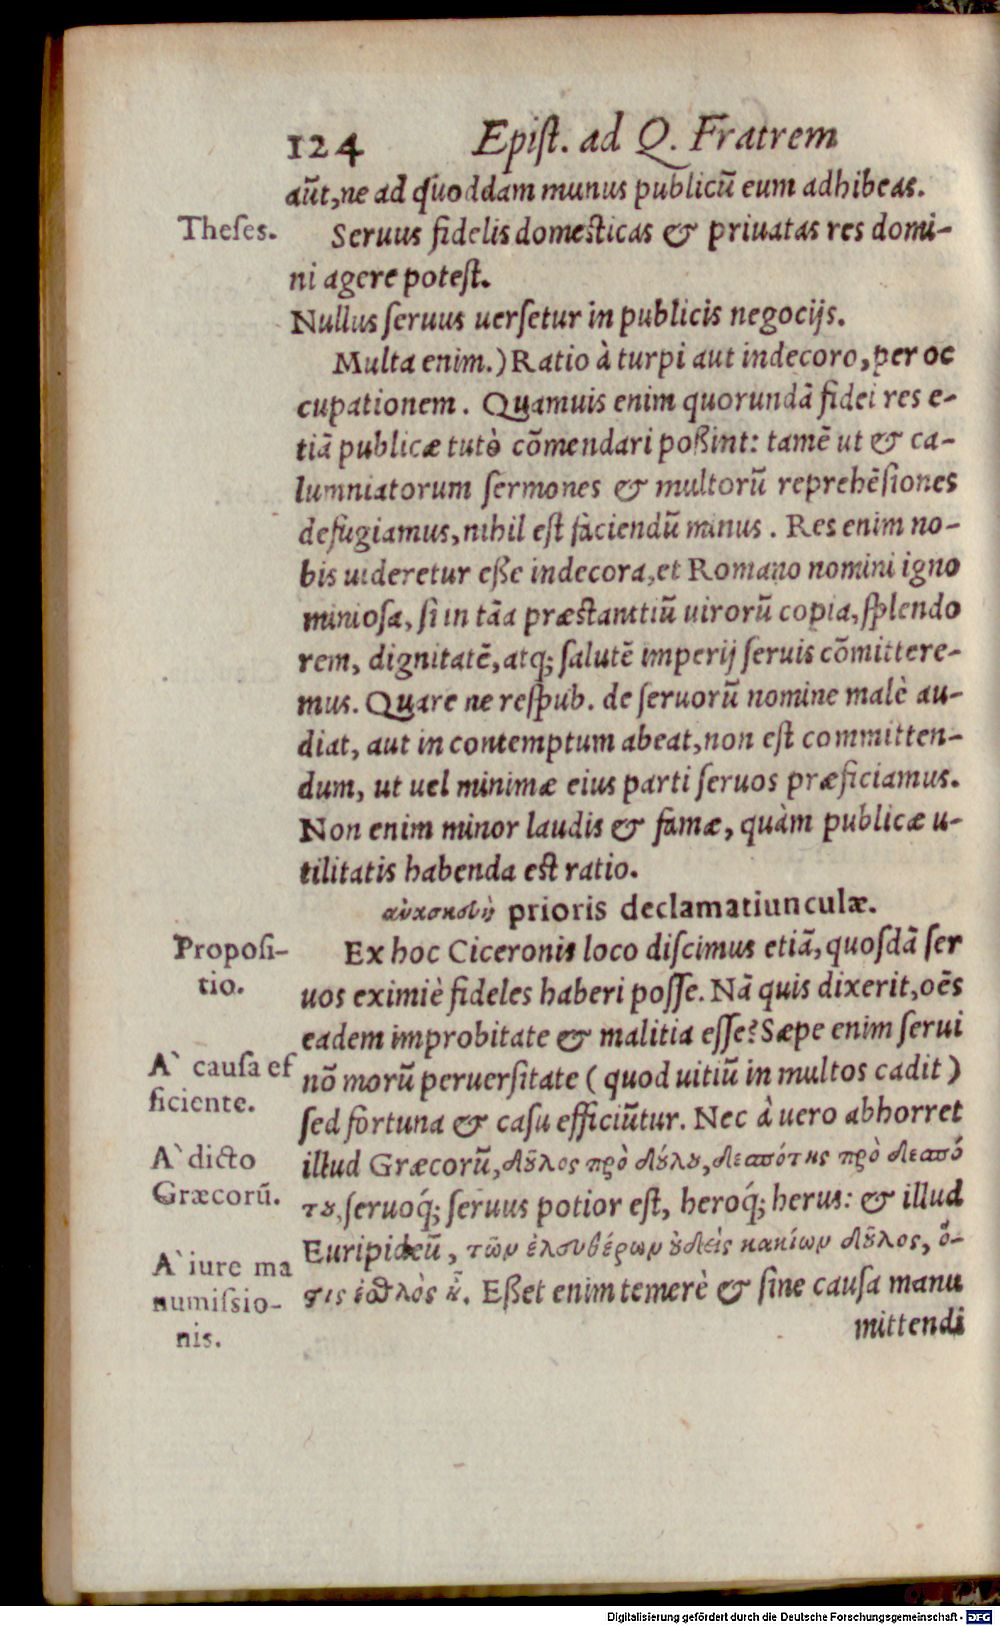 124 Epiſt. ad Q. Fratrem
aūt, ne ad quoddam munus publicū eum adhibeas.
Theſes.
Seruus fidelis domeſticas & priuatas res domi-
ni agere poteſt.
Nullus ſeruus uerſetur in publicis negocijs.
Multa enim.) Ratio à turpi aut indecoro, per oc
cupationem. Quamuis enim quorundā fidei res e-
tiā publicæ tutò cōmendari poßint: tamē ut & ca-
lumniatorum ſermones & multorū reprehēſiones
defugiamus, nihil eſt faciendū minus. Res enim no-
bis uideretur eße indecora, et Romano nomini igno
minioſa, ſi in tāa præstantiū uirorū copia, ſplendo
rem, dignitatē, atq; ſalutē imperij ſeruis cōmittere-
mus. Quare ne reſpub. de ſeruorū nomine malè au-
diat, aut in contemptum abeat, non eſt committen-
dum, ut uel minimæ eius parti ſeruos præficiamus.
Non enim minor laudis & famæ, quàm publicæ u-
tilitatis habenda eſt ratio.
prioris declamatiunculæ.
Propoſi-
tio.
Ex hoc Ciceronis loco diſcimus etiā, quoſdā ſer
uos eximiè fideles haberi poſſe. Nā quis dixerit, oēs
eadem improbitate & malitia eſſe? Sæpe enim ſerui
A` cauſa ef
ficiente.
nō morū peruerſitate ( quod uitiū in multos cadit )
ſed fortuna & caſu efficiūtur. Nec à uero abhorret
A` dicto
Græcorū.
illud Græcorū, δοῦλος πρὸ δούλου, δεσπότης πρὸ δεσπό
του, ſeruoq́; ſeruus potior eſt, heroq́; herus: & illud
A` iure ma
numiſsio-
nis.
Euripideū, τῶν ἐλευθέρων οὐδεὶς κακίων δοῦλος, ὅ-
στις ἐσθλὸς ᾖ. Eßet enim temerè & ſine cauſa manu
mittendi
Digitalisierung gefördert durch die Deutsche Forschungsgemeinschaft - DFG